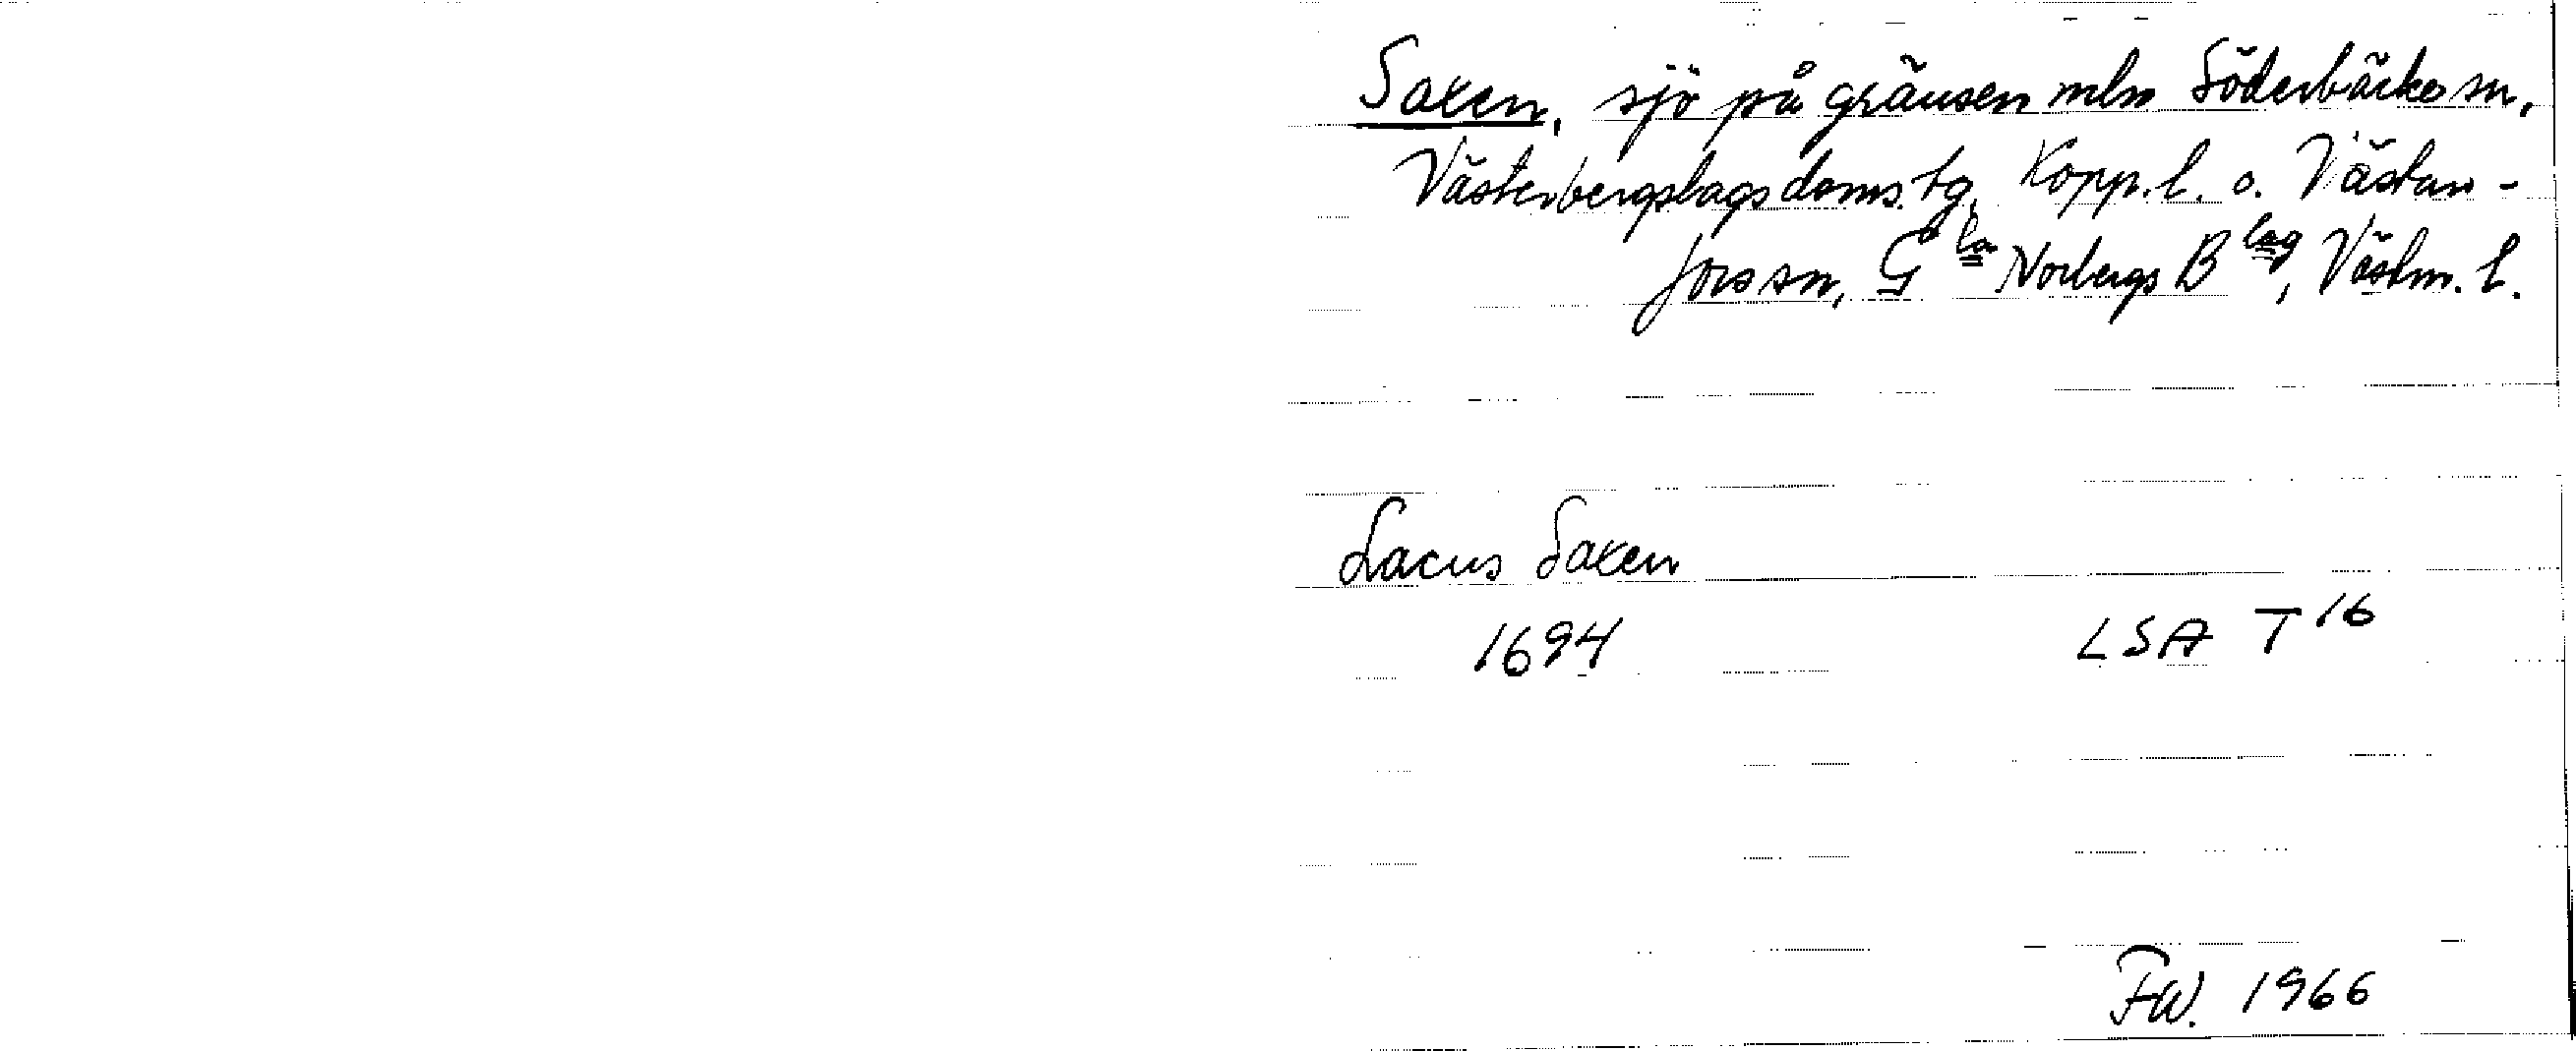 Saxen, sjö på gränsen mln Söderbärke sn,
Västerbergslags doms. tg, Kopp. l. o. Västan-
fors sn, G la Norbergs B lag, Västm. l.
Lacus Saxen
1694 LSA T 16
FW. 1966